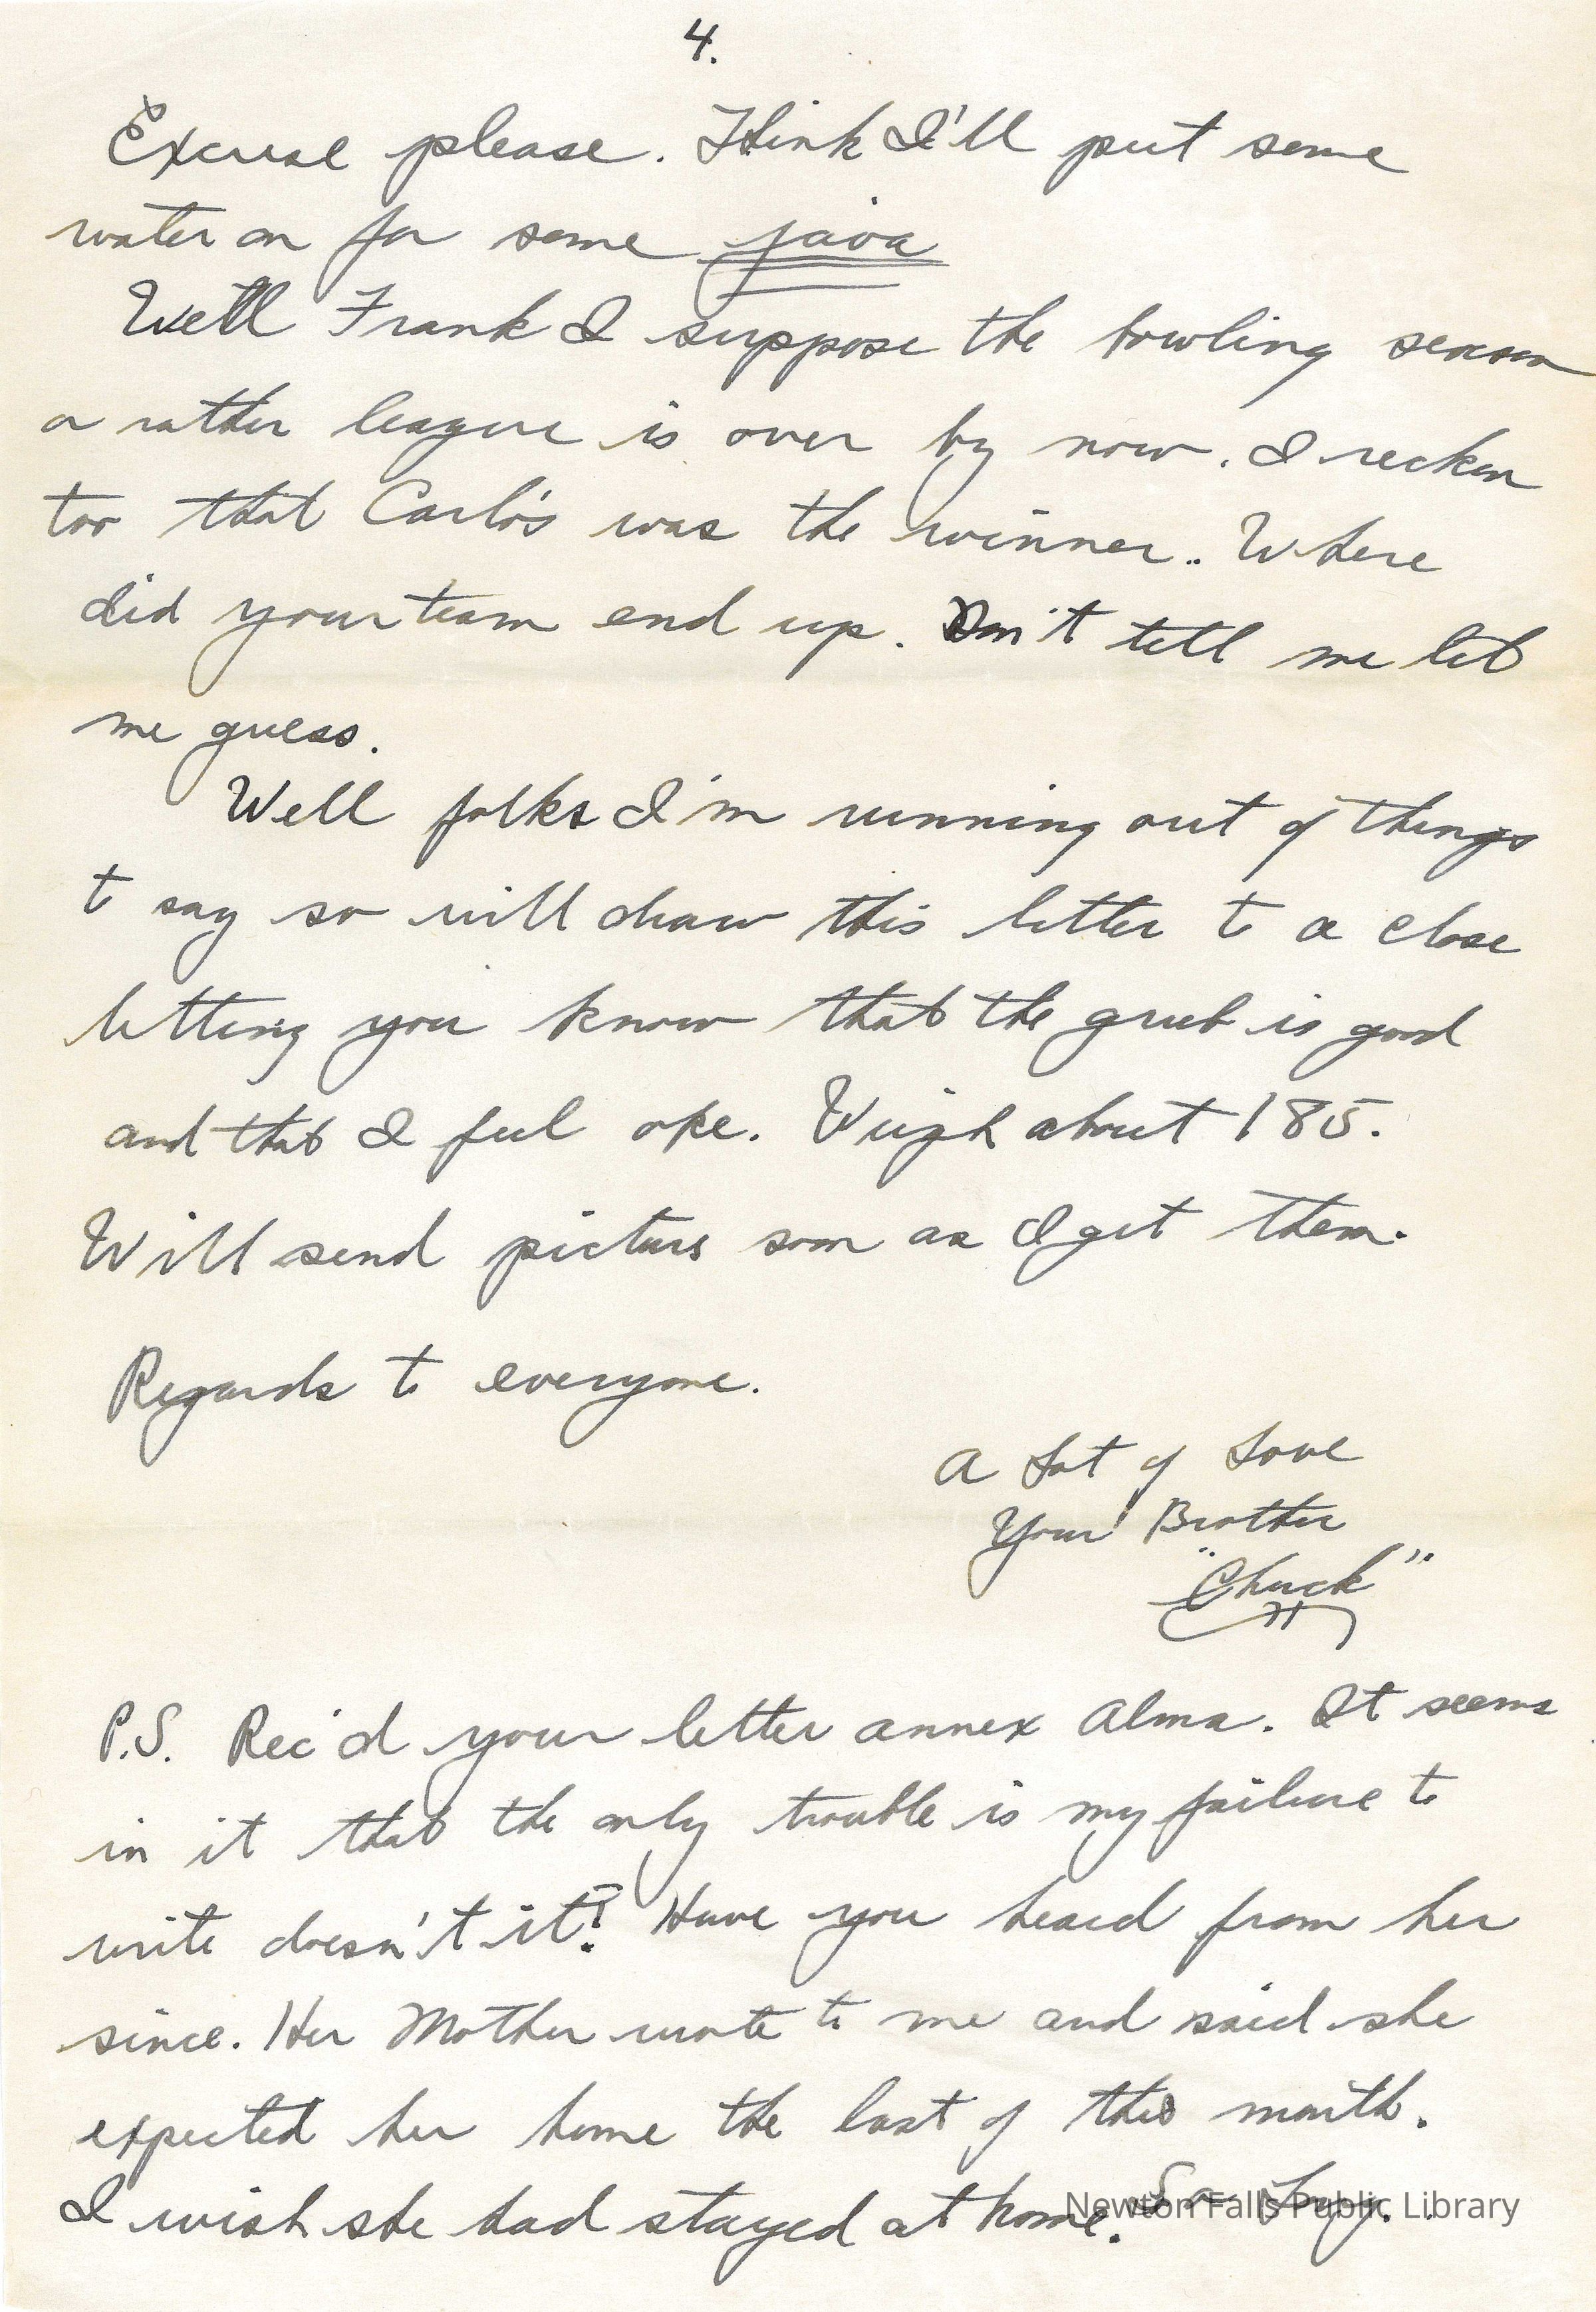 4.
Excuse please. Think I'll put some
water on for some java
Well Frank I suppose the bowling season
or rather league is over by now. I reckon
too that Carlo's was the winner.. Where
did your team end up. Don't tell me let
me guess.
Well folks I'm running out of things
to say so will draw this letter to a close
letting you know that the grub is good
and that I feel oke. Weigh about 185.
Will send picturs soon as I get them.
Regards to everyone.
A Lot of Love
Your Brother
"Chuck"
P.S. Rec'd your letter annex Alma. It seems
in it that the only trouble is my failure to
write doesn't it? Have you heard from her
since. Her Mother wrote to me and said she
expected her home the last of this month.
I wish she had stayed at home. So Long.
Newton Falls Public Library